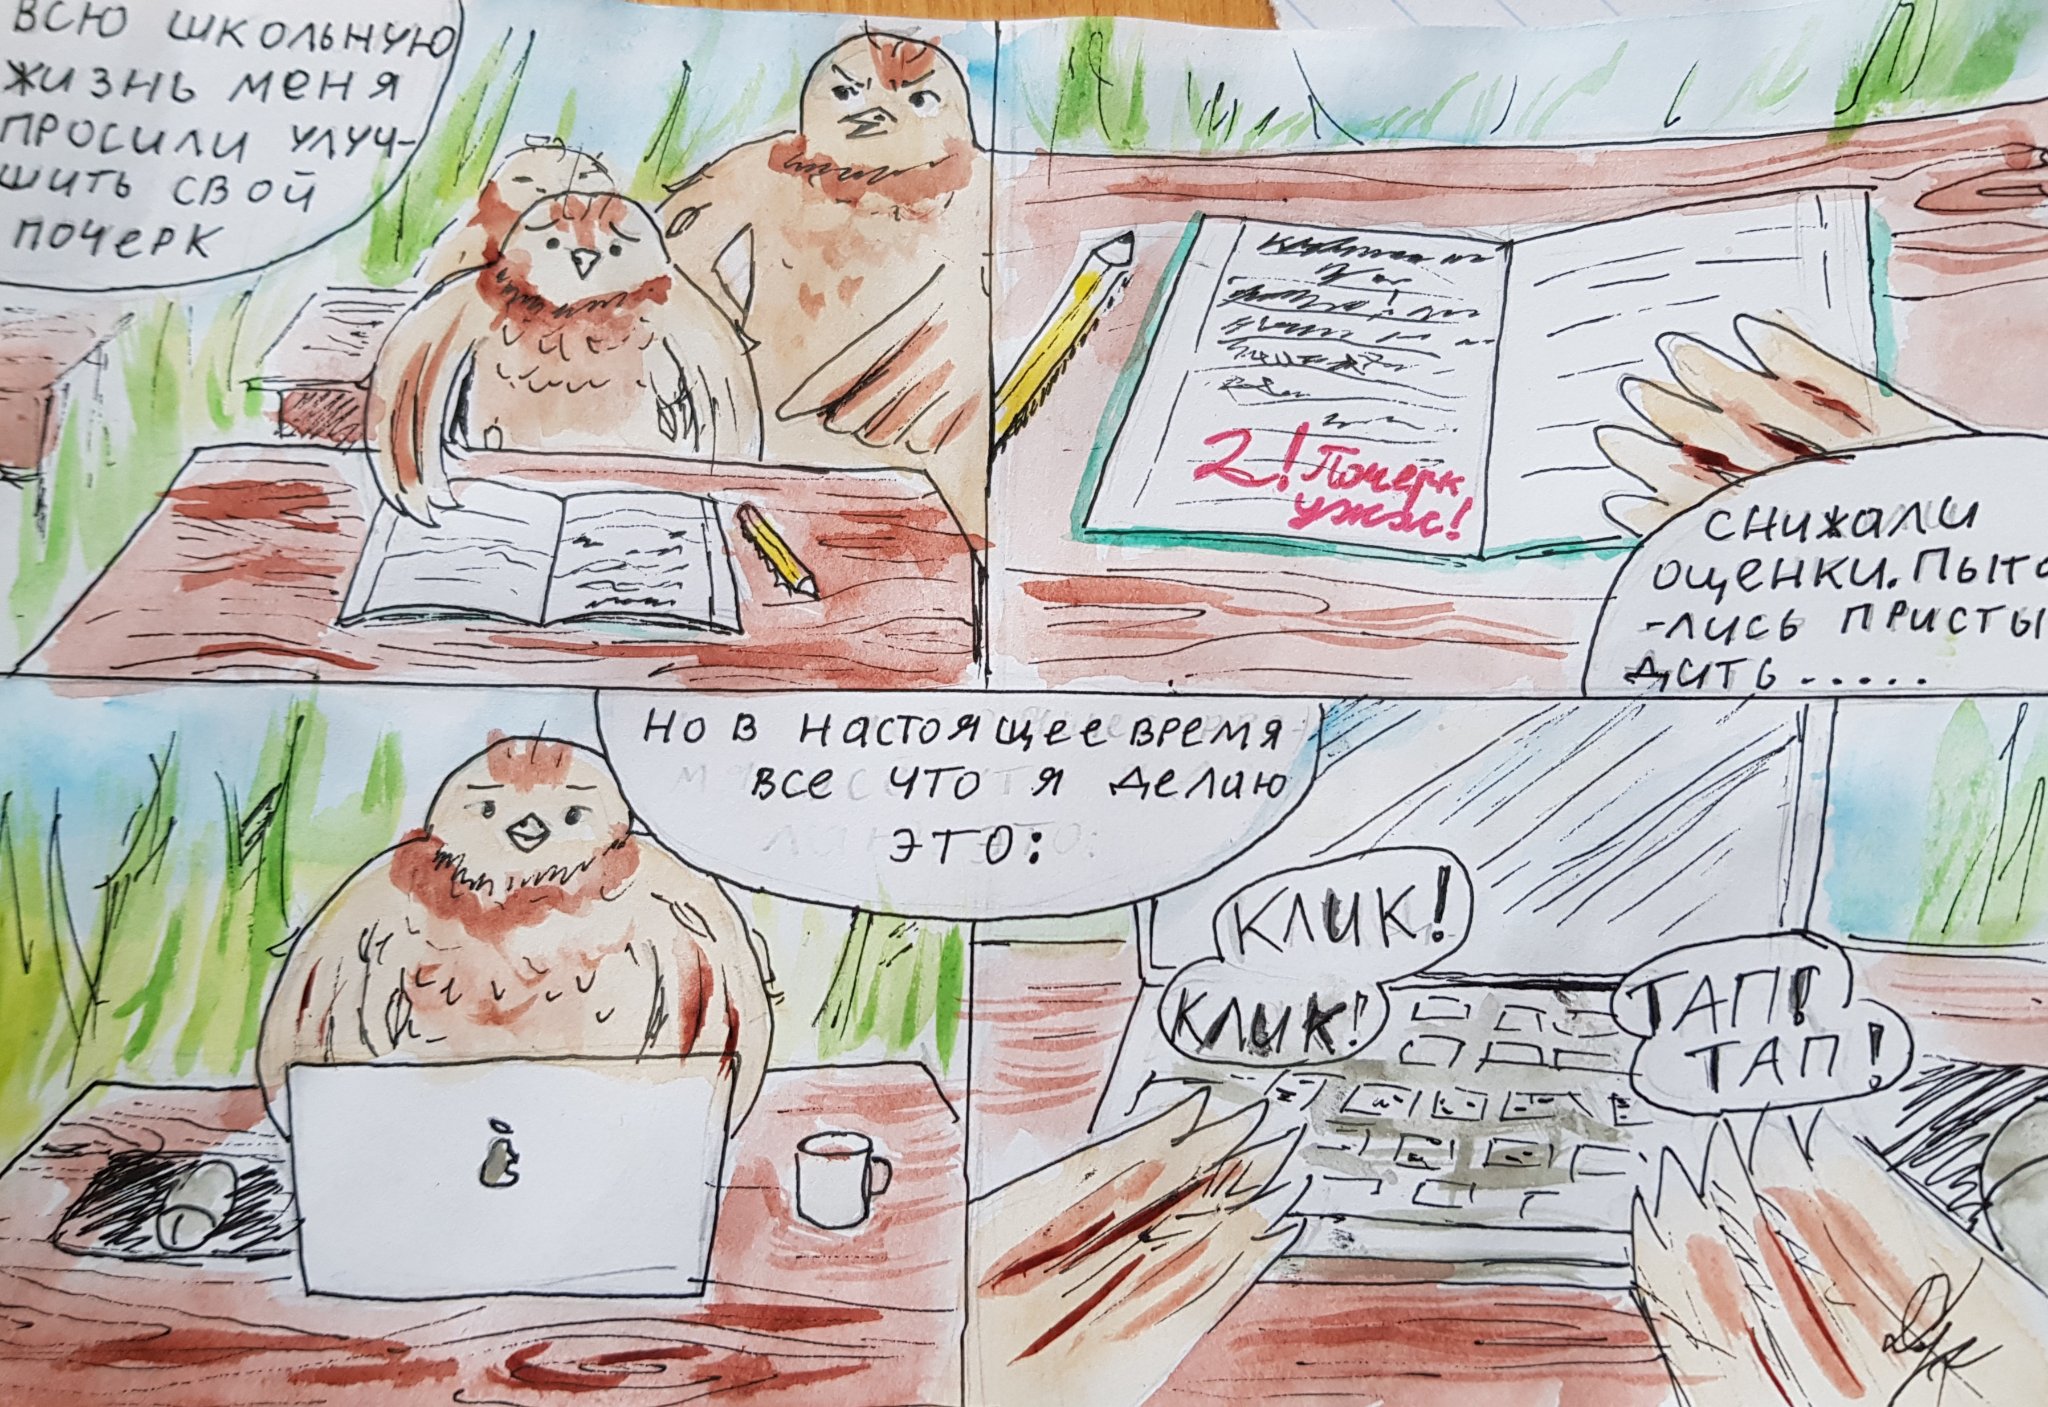 ВСЮ ШКОЛЬНУЮ
ЖИЗНЬ МЕНЯ
ПРОСИЛИ УЛУЧ-
ШИТЬ СВОЙ
ПОЧЕРК
2! Почерк
ужас!
СНИЖАЛИ
ОЦЕНКИ. ПЫТА
-ЛИСЬ ПРИСТЫ
ДИТЬ.....
НО В НАСТОЯЩЕЕ ВРЕМЯ
ВСЕ ЧТО Я ДЕЛАЮ
ЭТО:
КЛИК!
КЛИК!
ТАП!
ТАП!